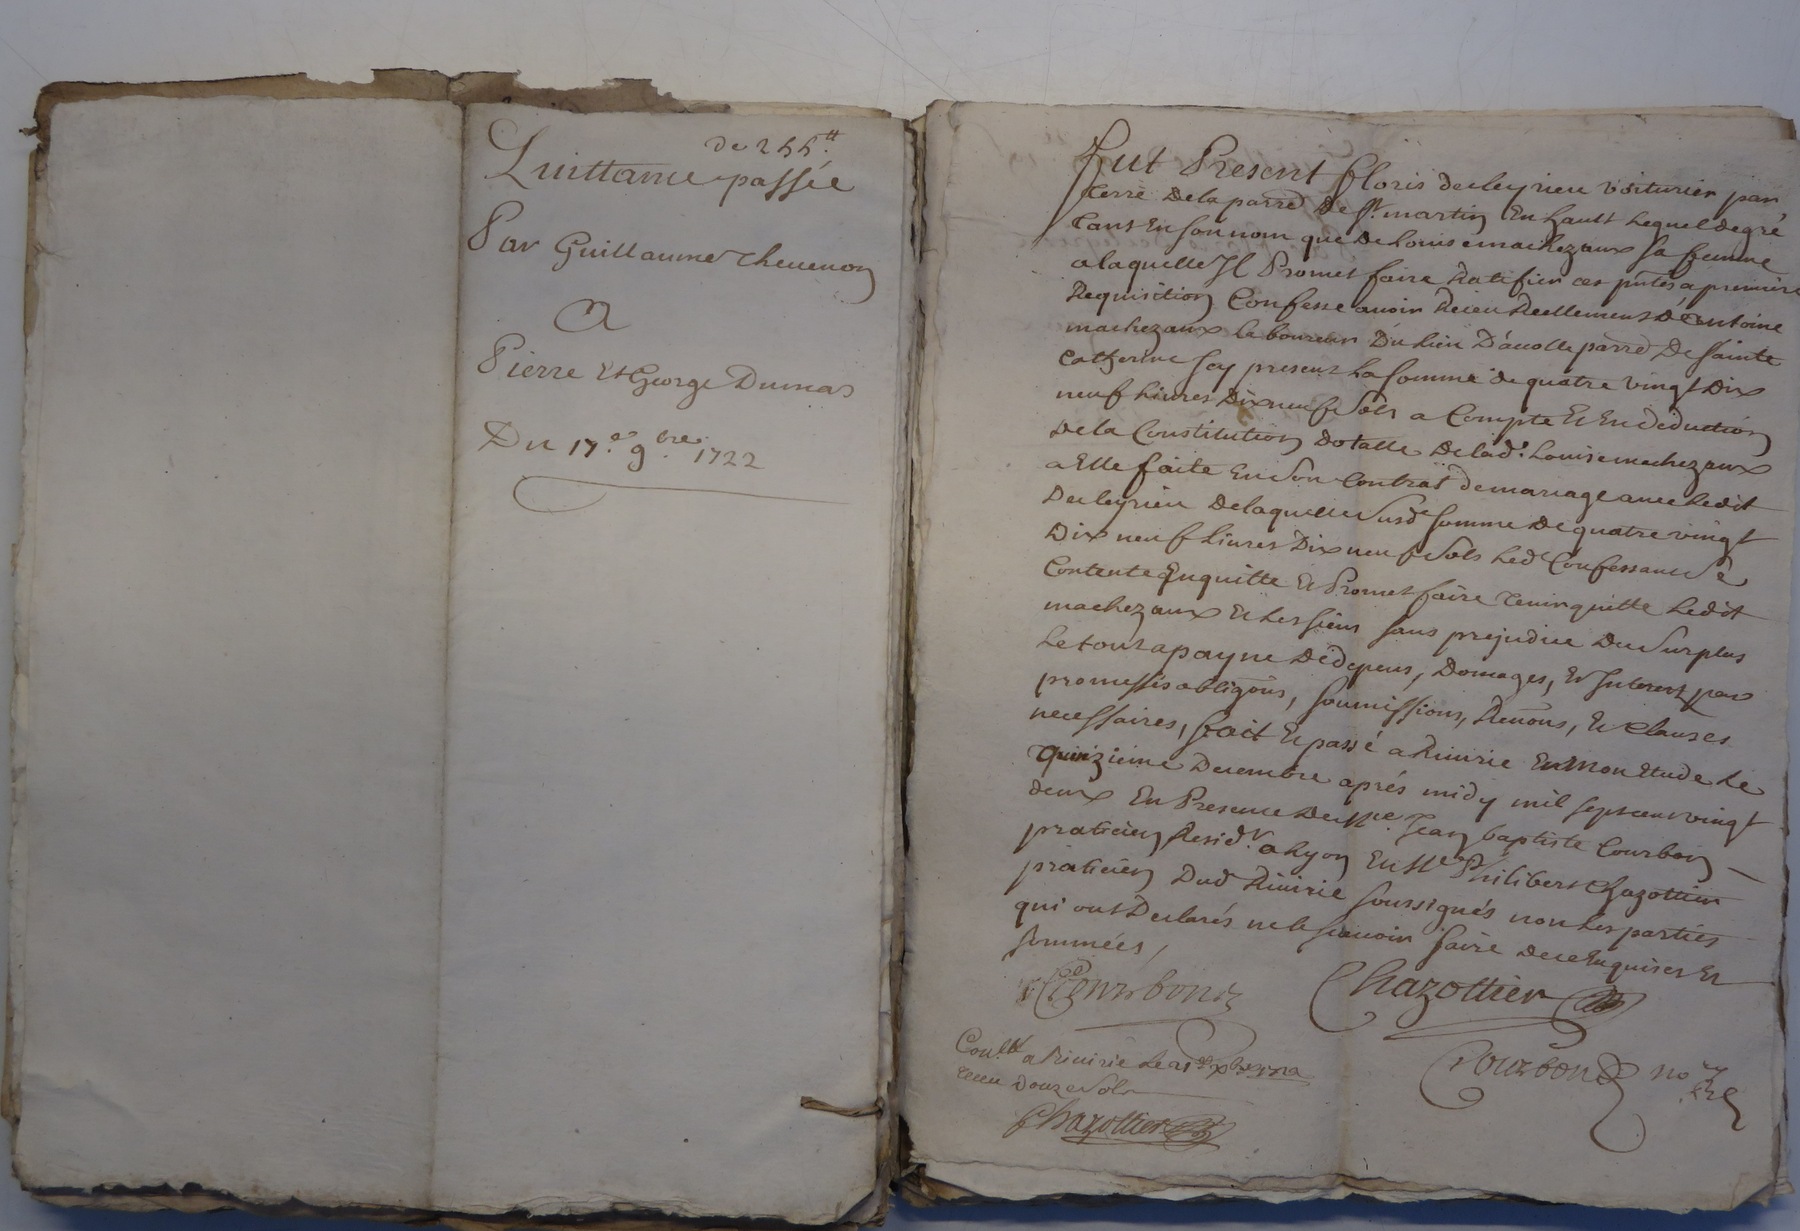 de 255.tt
Quittance passée
Par Guillaume Thevenon
A
Pierre Et George Dumas
Du 17.e 9.bre 1722
Fut Present floris decleyrieu voiturier par
terre Dela parr.e De St. martin En hault Lequel de gré
tant En son nom que De Louise machezaux sa femme
a laquelle Il Promet faire Ratifier ces pntes a premiere
Requisition Confesse auoir Receu Reellement D'antoine
machezaux Laboureur Du Lieu D'auolle parr.e De sainte
Catherine Icy present La somme de quatre vingt Dix
neuf Liures Dix neuf sols a Compte Et En deduction
De la Constitution dotalle De lad. Louise machezaux
a Elle faite En son Contrat de mariage auec ledit
Decleyrieu De laquelle susd.e somme De quatre vingt
Dix neuf Liures Dix neuf sols Led. Confessant se
Contente Enquitte Et Promet faire tenir quitte Ledit
machezaux Et Les siens sans prejudice Du surplus
Le tout a payne De depens, Domages, Et Interest par
promesses obligons, soumissions, Renons, Et Clauses
necessaires, fait Et passé a Riuirie En Mon Etude Le
quinzieme Decembre aprés midy mil sept cent vingt
deux En Presence De Jean baptiste Courbon
praticien Resid.t a Lyon Et Philibert Chazottier
praticien Dud Riuirie soussignés non Les parties
qui ont Declarés ne le scauoir faire De ce Enquises Et
sommées,
Courbon
Chazottier
Courbon no.re
Con.llé a Riuirie Le 21.e Xbre 1722
receu Douze sols
Chazottier